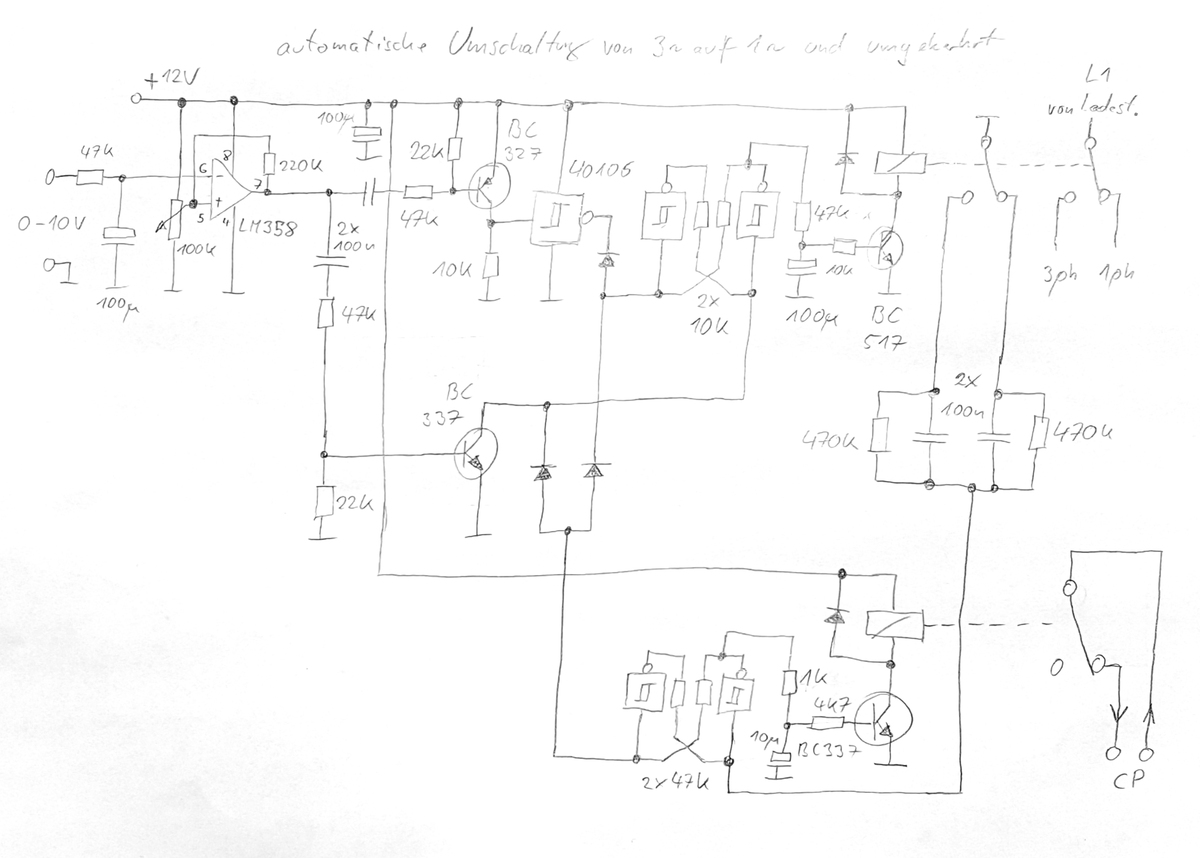 automatische Umschaltung von 3~ auf 1~ und umgekehrt
+12V
L1
von Ladest.
100µ
BC
327
47k
6
8
220k
7
+
5
4
LM358
22k
40106
0-10V
100k
2x
100n
47k
47k
10k
BC
517
3ph
1ph
100µ
10k
2x
10k
100µ
47k
BC
337
2x
100n
470k
470k
22k
0
1k
4k7
10µ
BC337
2x47k
CP